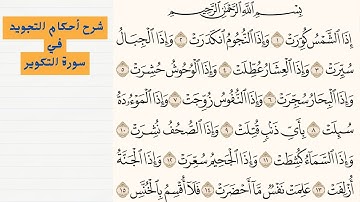 شرح أحكام التجويد
في
سورة التكوير
بِسْمِ اللَّهِ الرَّحْمَٰنِ الرَّحِيمِ
إِذَا الشَّمْسُ كُوِّرَتْ ١ وَإِذَا النُّجُومُ انكَدَرَتْ ٢ وَإِذَا الْجِبَالُ
سُيِّرَتْ ٣ وَإِذَا الْعِشَارُ عُطِّلَتْ ٤ وَإِذَا الْوُحُوشُ حُشِرَتْ ٥
وَإِذَا الْبِحَارُ سُجِّرَتْ ٦ وَإِذَا النُّفُوسُ زُوِّجَتْ ٧ وَإِذَا الْمَوْءُودَةُ
سُئِلَتْ ٨ بِأَيِّ ذَنبٍ قُتِلَتْ ٩ وَإِذَا الصُّحُفُ نُشِرَتْ ١٠
وَإِذَا السَّمَاءُ كُشِطَتْ ١١ وَإِذَا الْجَحِيمُ سُعِّرَتْ ١٢ وَإِذَا الْجَنَّةُ
أُزْلِفَتْ ١٣ عَلِمَتْ نَفْسٌ مَّا أَحْضَرَتْ ١٤ فَلَا أُقْسِمُ بِالْخُنَّسِ ١٥